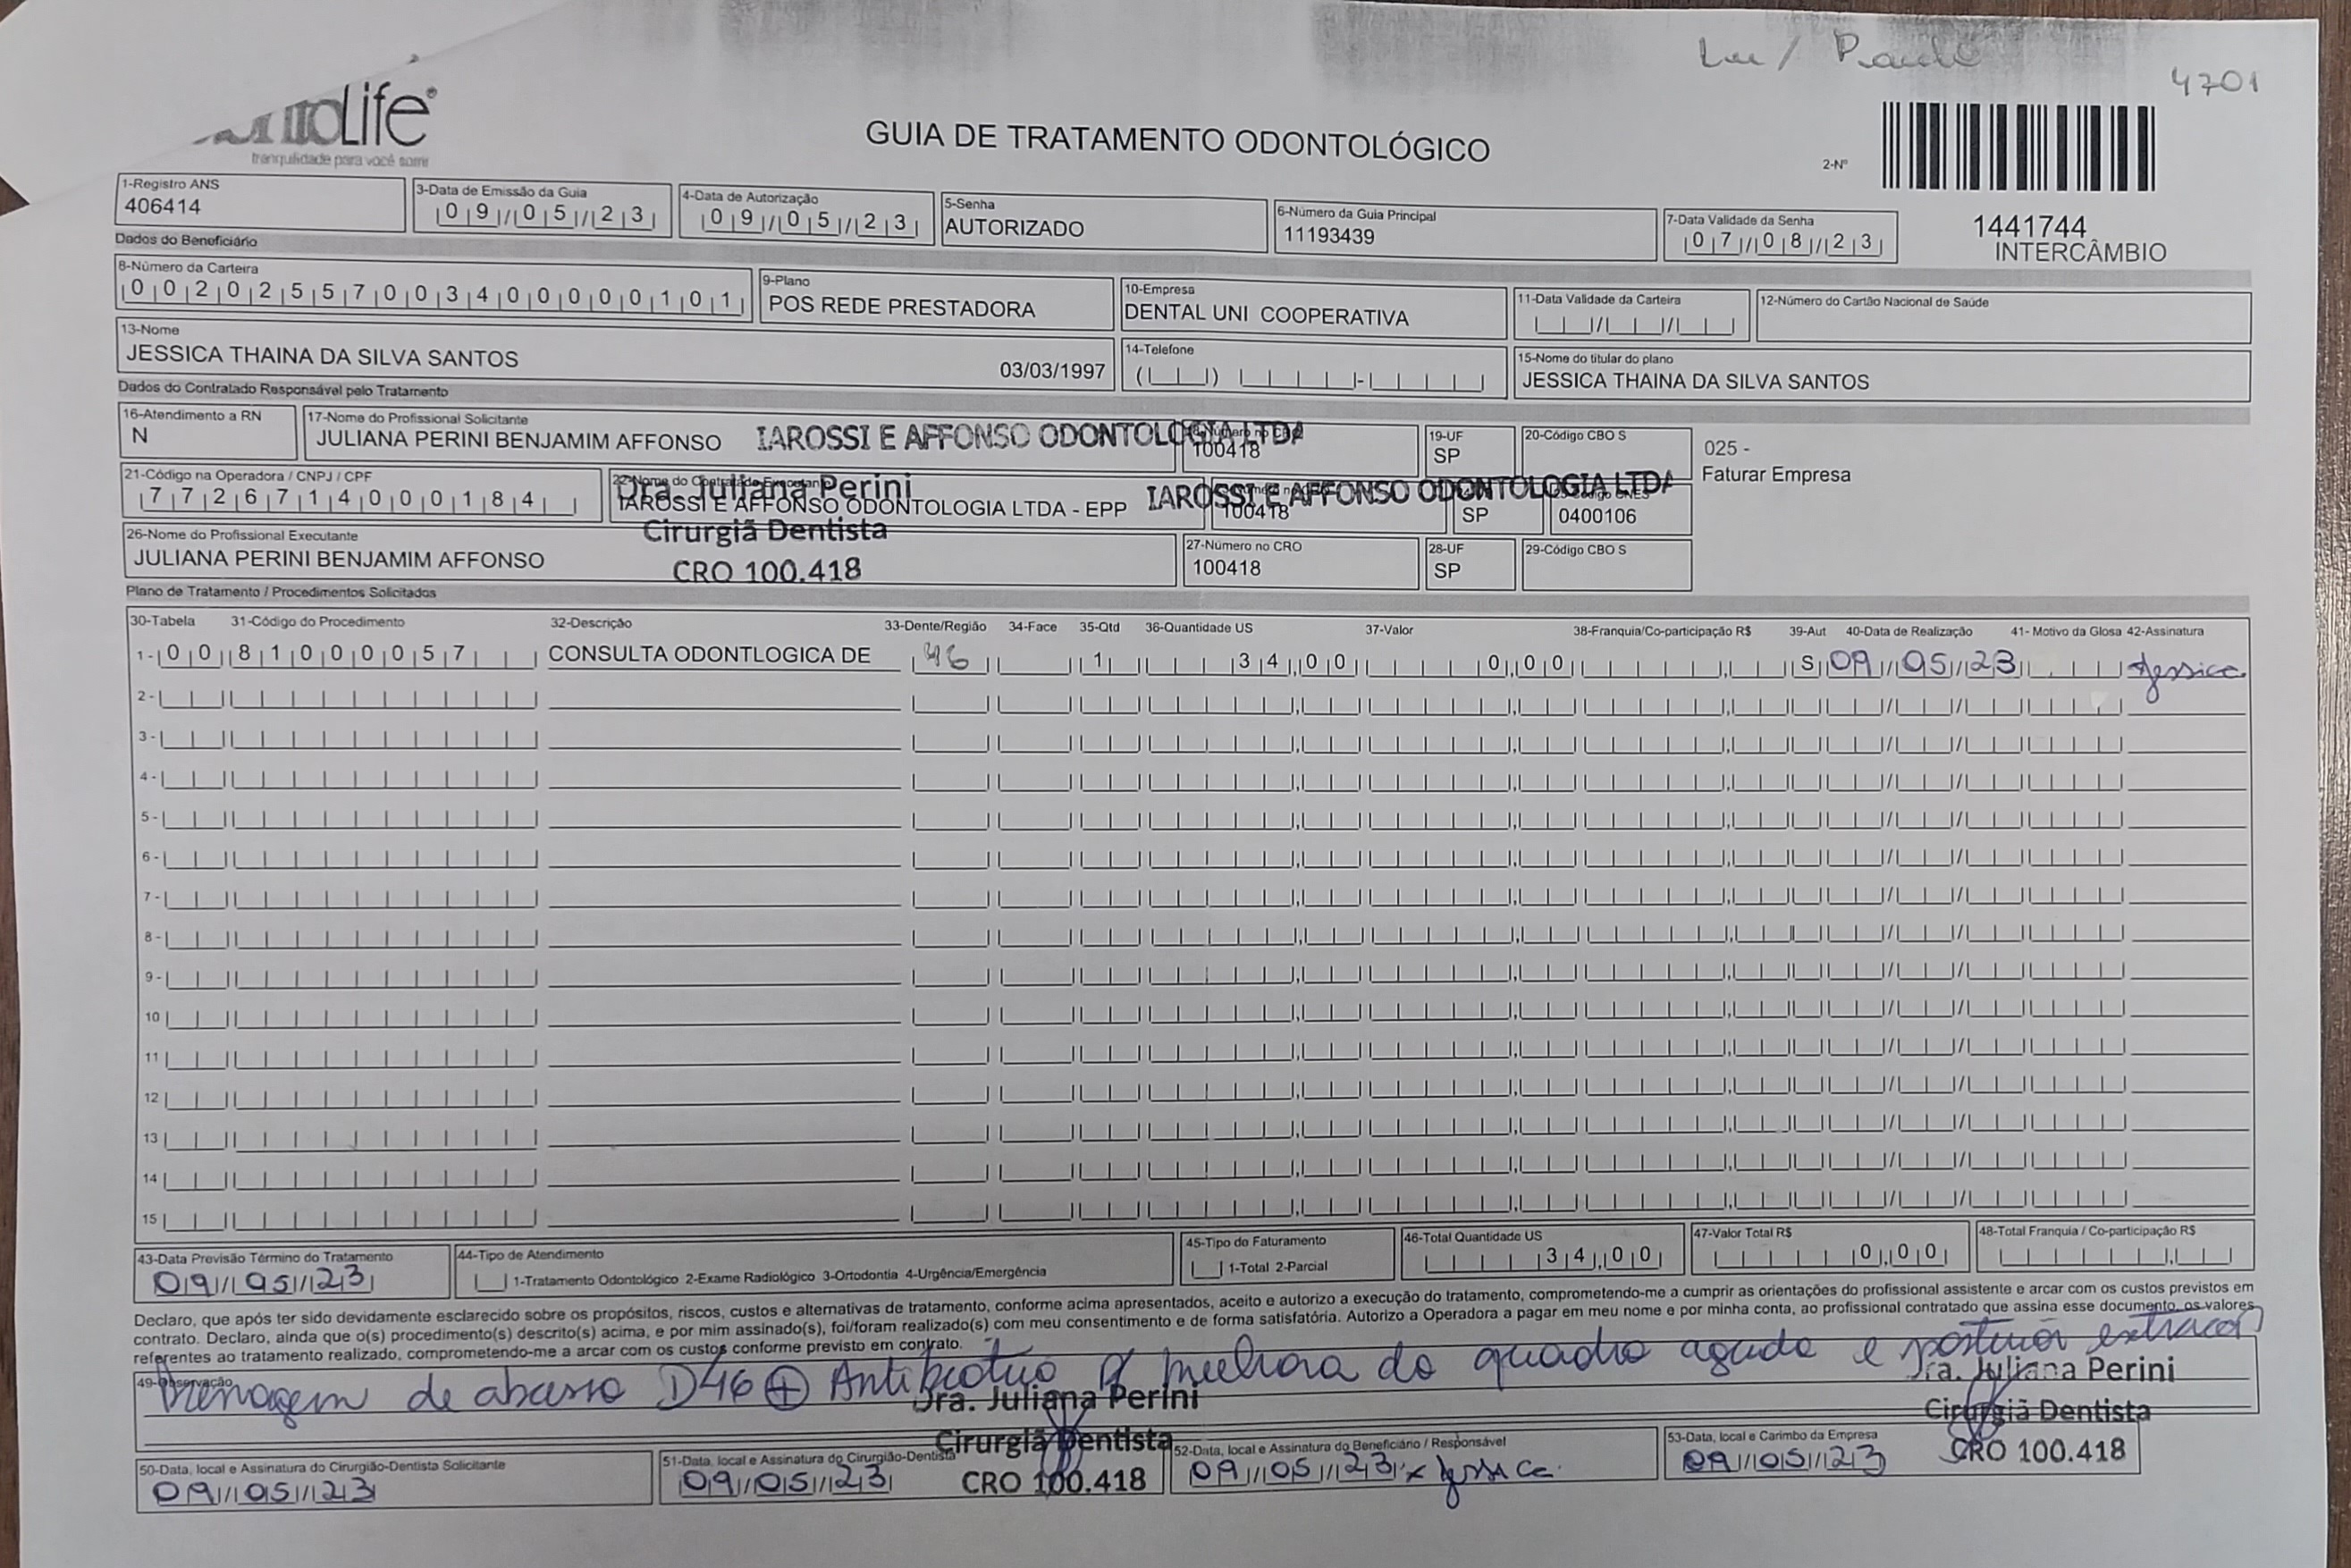 Lu / Paulo
4701
Life
tranquilidade para você sorrir
GUIA DE TRATAMENTO ODONTOLÓGICO
2-Nº
1441744
INTERCÂMBIO
1-Registro ANS
406414
3-Data de Emissão da Guia
09/05/23
4-Data de Autorização
09/05/23
5-Senha
AUTORIZADO
6-Número da Guia Principal
11193439
7-Data Validade da Senha
07/08/23
Dados do Beneficiário
8-Número da Carteira
002025570034000000101
9-Plano
POS REDE PRESTADORA
10-Empresa
DENTAL UNI COOPERATIVA
11-Data Validade da Carteira
12-Número do Cartão Nacional de Saúde
13-Nome
JESSICA THAINA DA SILVA SANTOS 03/03/1997
14-Telefone
15-Nome do titular do plano
JESSICA THAINA DA SILVA SANTOS
Dados do Contratado Responsável pelo Tratamento
16-Atendimento a RN
N
17-Nome do Profissional Solicitante
JULIANA PERINI BENJAMIM AFFONSO
IAROSSI E AFFONSO ODONTOLOGIA LTDA
100418
19-UF
SP
20-Código CBO S
025 -
Faturar Empresa
21-Código na Operadora / CNPJ / CPF
7726714000184
22-Nome do Contratado Executante
IAROSSI E AFFONSO ODONTOLOGIA LTDA - EPP
Dra. Juliana Perini
Cirurgiã Dentista
CRO 100.418
IAROSSI E AFFONSO ODONTOLOGIA LTDA
100418
SP
0400106
26-Nome do Profissional Executante
JULIANA PERINI BENJAMIM AFFONSO
27-Número no CRO
100418
28-UF
SP
29-Código CBO S
Plano de Tratamento / Procedimentos Solicitados
30-Tabela 31-Código do Procedimento 32-Descrição 33-Dente/Região 34-Face 35-Qtd 36-Quantidade US 37-Valor 38-Franquia/Co-participação R$ 39-Aut 40-Data de Realização 41- Motivo da Glosa 42-Assinatura
1- 00 81000057 CONSULTA ODONTLOGICA DE 46 1 34,00 0,00 S 09/05/23 Jessica
2-
3-
4-
5-
6-
7-
8-
9-
10
11
12
13
14
15
43-Data Previsão Término do Tratamento
09/05/23
44-Tipo de Atendimento
1-Tratamento Odontológico 2-Exame Radiológico 3-Ortodontia 4-Urgência/Emergência
45-Tipo do Faturamento
1-Total 2-Parcial
46-Total Quantidade US
34,00
47-Valor Total R$
0,00
48-Total Franquia / Co-participação R$
Declaro, que após ter sido devidamente esclarecido sobre os propósitos, riscos, custos e alternativas de tratamento, conforme acima apresentados, aceito e autorizo a execução do tratamento, comprometendo-me a cumprir as orientações do profissional assistente e arcar com os custos previstos em
contrato. Declaro, ainda que o(s) procedimento(s) descrito(s) acima, e por mim assinado(s), foi/foram realizado(s) com meu consentimento e de forma satisfatória. Autorizo a Operadora a pagar em meu nome e por minha conta, ao profissional contratado que assina esse documento, os valores
referentes ao tratamento realizado, comprometendo-me a arcar com os custos conforme previsto em contrato.
49-Observação
Drenagem de abcesso D46 + Antibiótico p/ melhora do quadro agudo e posterior extracao
Dra. Juliana Perini
Cirurgiã Dentista
CRO 100.418
Dra. Juliana Perini
Cirurgiã Dentista
CRO 100.418
50-Data, local e Assinatura do Cirurgião-Dentista Solicitante
09/05/23
51-Data, local e Assinatura do Cirurgião-Dentista
09/05/23
52-Data, local e Assinatura do Beneficiário / Responsável
09/05/23 x Jessica
53-Data, local e Carimbo da Empresa
09/05/23